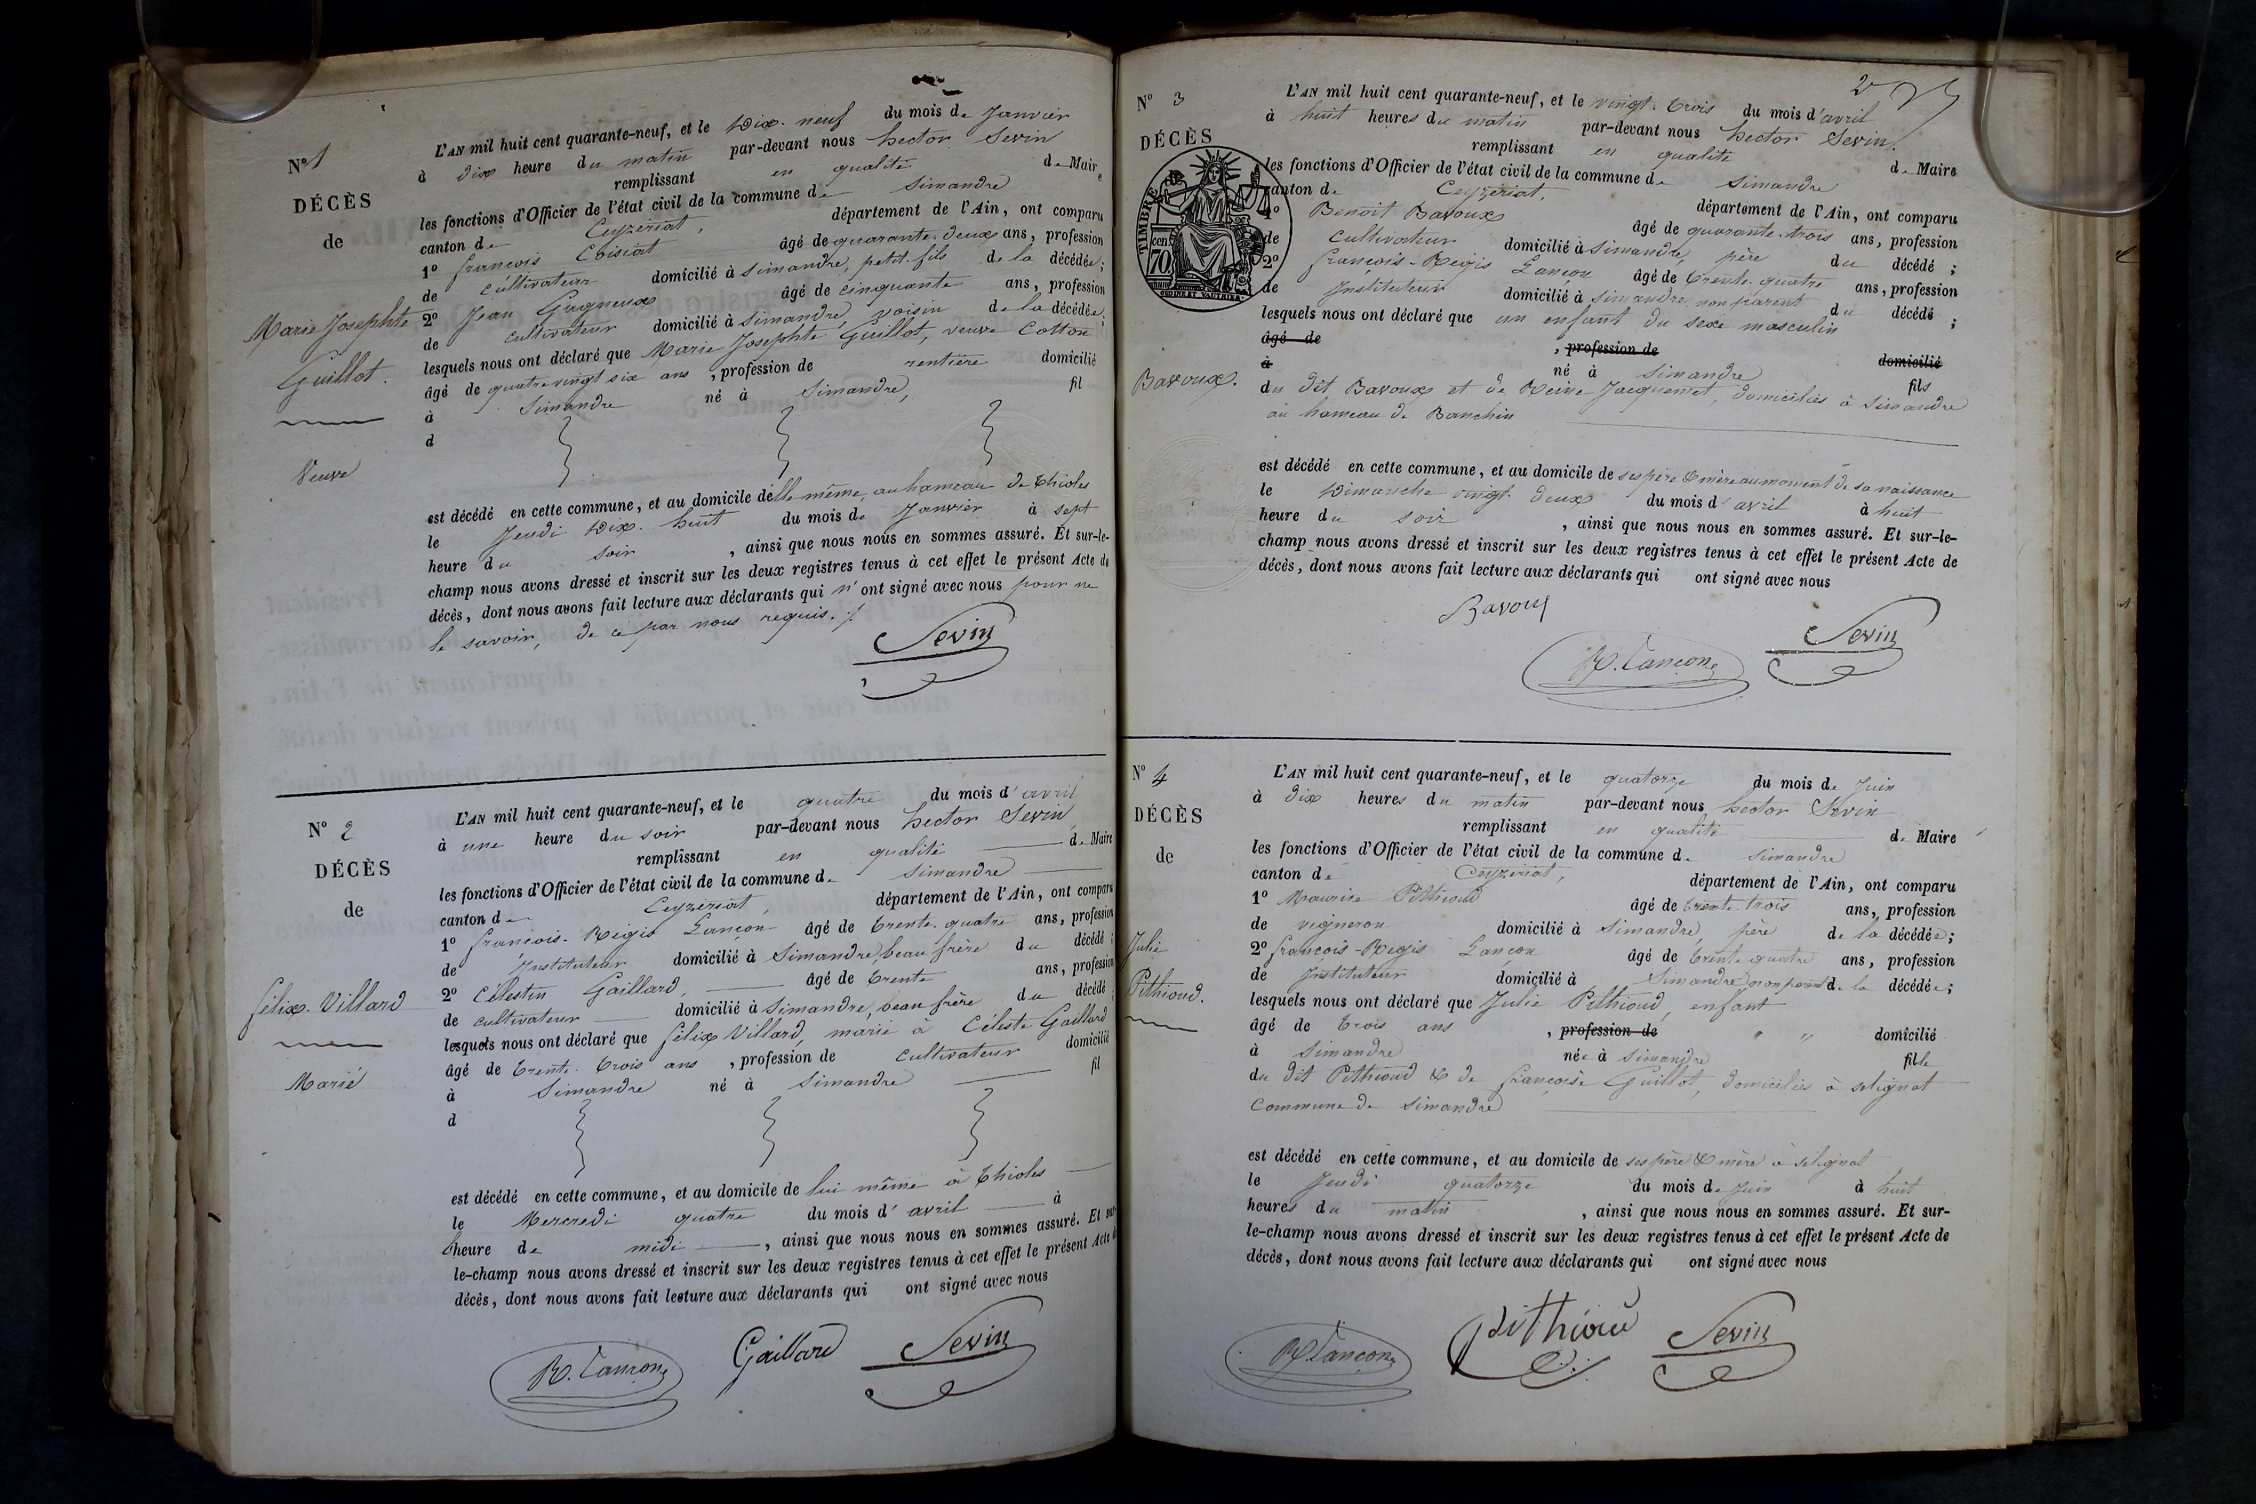 N° 1
DÉCÈS
de
Marie Josephte
Guillot.
Veuve
L'AN mil huit cent quarante-neuf, et le Dix-neuf du mois de Janvier
à dix heure du matin par-devant nous hector Sevin
remplissant en qualité de Maire
les fonctions d'Officier de l'état civil de la commune de Simandre
canton de Ceyzeriat, département de l'Ain, ont comparu
1° françois Coisiat âgé de quarante-deux ans, profession
de cultivateur domicilié à Simandre, petit-fils de la décédée;
2° Jean Gagneux âgé de cinquante ans, profession
de cultivateur domicilié à Simandre, voisin de la décédée;
lesquels nous ont déclaré que Marie Josephte Guillot, veuve Cotton
âgé de quatre vingt six ans, profession de rentière domicilié
à Simandre né à Simandre, fil
d
est décédé en cette commune, et au domicile d'elle même, au hameau de Thioles
le Jeudi Dix-huit du mois de Janvier à sept
heure du soir, ainsi que nous nous en sommes assuré. Et sur-le-
champ nous avons dressé et inscrit sur les deux registres tenus à cet effet le présent Acte de
décès, dont nous avons fait lecture aux déclarants qui n'ont signé avec nous pour ne
le savoir, de ce par nous requis./.
Sevin
N° 2
DÉCÈS
de
félix Villard
Marié
L'AN mil huit cent quarante-neuf, et le quatre du mois d'avril
à une heure du soir par-devant nous hector Sevin
remplissant en qualité de Maire
les fonctions d'Officier de l'état civil de la commune de Simandre
canton de Ceyzeriat, département de l'Ain, ont comparu
1° françois-Regis Lançon âgé de trente-quatre ans, profession
de Instituteur domicilié à Simandre, beau frère du décédé;
2° Célestin Gaillard, âgé de trente ans, profession
de cultivateur domicilié à Simandre, beau frère du décédé;
lesquels nous ont déclaré que félix Villard, marié à Céleste Gaillard
âgé de trente-trois ans, profession de cultivateur domicilié
à Simandre né à Simandre fil
d
est décédé en cette commune, et au domicile de lui même à Thioles
le Mercredi quatre du mois d'avril à
heure de midi, ainsi que nous nous en sommes assuré. Et sur-
le-champ nous avons dressé et inscrit sur les deux registres tenus à cet effet le présent Acte de
décès, dont nous avons fait lecture aux déclarants qui ont signé avec nous
R. Lançon Gaillard Sevin
2
N° 3
DÉCÈS
TIMBRE
cen. 70
de
Bavoux.
L'AN mil huit cent quarante-neuf, et le vingt-trois du mois d'avril
à huit heures du matin par-devant nous hector Sevin.
remplissant en qualité de Maire
les fonctions d'Officier de l'état civil de la commune de Simandre
canton de Ceyzeriat, département de l'Ain, ont comparu
1° Benoit Bavoux âgé de quarante-trois ans, profession
de cultivateur domicilié à Simandre, père du décédé;
2° françois-Regis Lançon âgé de trente-quatre ans, profession
de Instituteur domicilié à Simandre, non parent du décédé;
lesquels nous ont déclaré que un enfant du sexe masculin
âgé de, profession de domicilié
à né à Simandre fils
du dit Bavoux et de Reine Jacquemet, domiciliés à Simandre
au hameau de Banchin
est décédé en cette commune, et au domicile de ses père & mère au moment de sa naissance
le Dimanche vingt-deux du mois d'avril à huit
heure du soir, ainsi que nous nous en sommes assuré. Et sur-le-
champ nous avons dressé et inscrit sur les deux registres tenus à cet effet le présent Acte de
décès, dont nous avons fait lecture aux déclarants qui ont signé avec nous
Bavoux
R. Lançon Sevin
N° 4
DÉCÈS
de
Julie
Pithioud.
L'AN mil huit cent quarante-neuf, et le quatorze du mois de Juin
à dix heures du matin par-devant nous hector Sevin
remplissant en qualité de Maire
les fonctions d'Officier de l'état civil de la commune de Simandre
canton de Ceyzeriat, département de l'Ain, ont comparu
1° Maurice Pithioud âgé de trente-trois ans, profession
de vigneron domicilié à Simandre, père de la décédée;
2° françois-Regis Lançon âgé de trente-quatre ans, profession
de Instituteur domicilié à Simandre, non parent de la décédée;
lesquels nous ont déclaré que Julie Pithioud, enfant
âgé de trois ans, profession de " " domicilié
à Simandre née à Simandre fille
du dit Pithioud & de françoise Guillot, domiciliés à Selignat
commune de Simandre
est décédé en cette commune, et au domicile de ses père & mère à Selignat
le Jeudi quatorze du mois de Juin à huit
heures du matin, ainsi que nous nous en sommes assuré. Et sur-
le-champ nous avons dressé et inscrit sur les deux registres tenus à cet effet le présent Acte de
décès, dont nous avons fait lecture aux déclarants qui ont signé avec nous
R. Lançon Pithioud Sevin